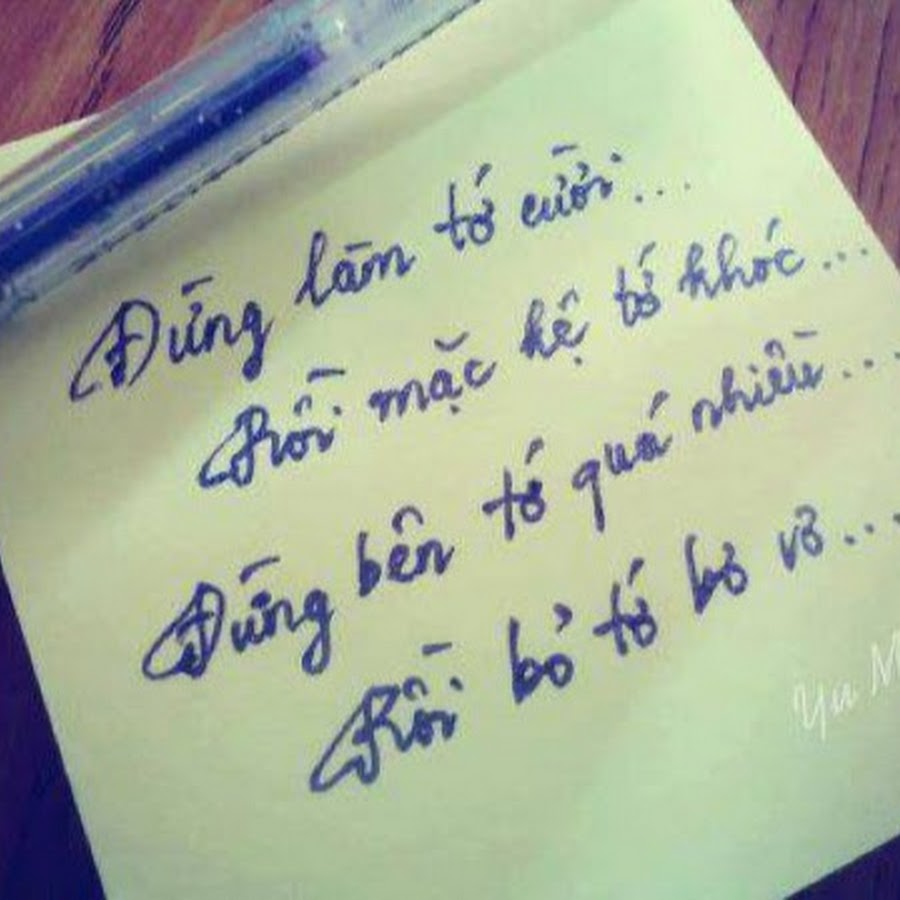 Đừng làm tớ cười...
Rồi mặc kệ tớ khóc...
Đừng bên tớ quá nhiều...
Rồi bỏ tớ bơ vơ...
Yu M